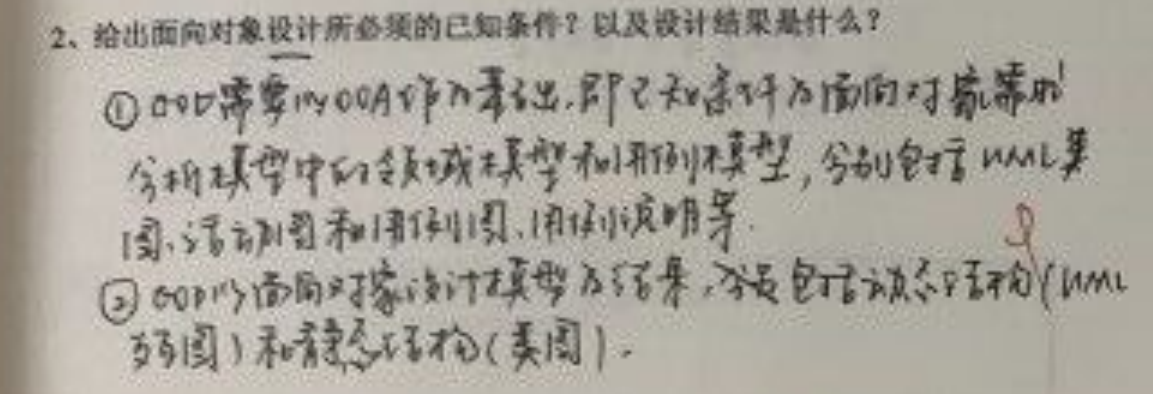 2、给出面向对象设计所必须的已知条件？以及设计结果是什么？
① OOD需要以OOA作为基础，即已知条件为面向对象需求
分析模型中的领域模型和用例模型，分别包含UML类
图、活动图和用例图、用例说明等.
② OOD以面向对象设计模型为结果，包括动态结构(UML
交互图)和静态结构(类图).